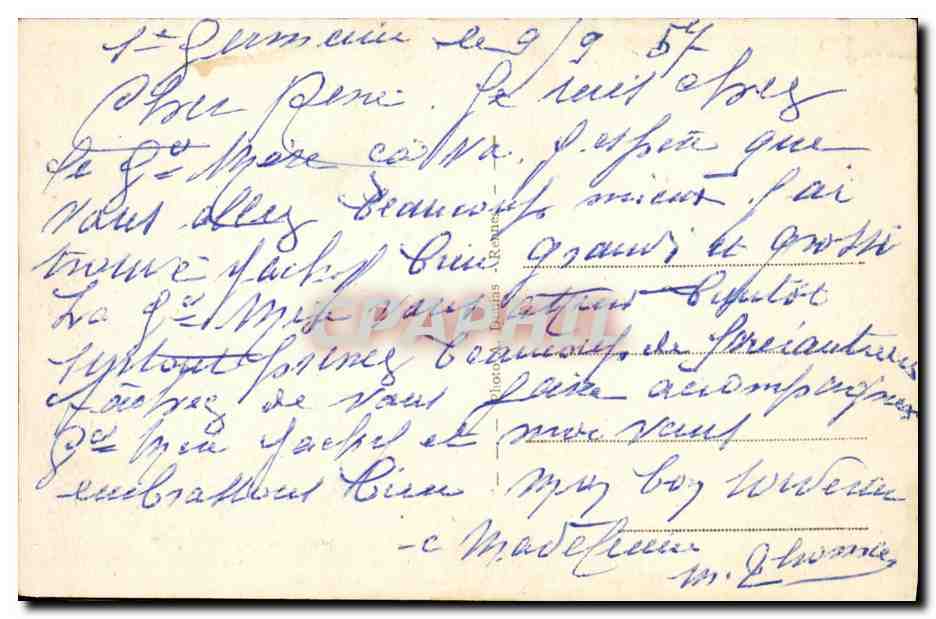 St Germain le 9/9 57
Cher René. Je suis chez
la Gd Mère ça va. J'espère que
vous allez beaucoup mieux. J'ai
trouvé Jacky bien grandi et grossi
La Gd Mère vous attend bientôt
surtout prenez beaucoup de précautions
tâchez de vous faire accompagner
Gd Mère Jacky et moi vous
embrassons bien mon bon souvenir
Madeleine
M. Thomas
Photo Dugas - Rennes
CPAPHIL